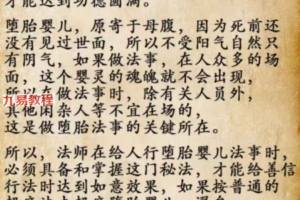 才能达到功德圆满。
堕胎婴儿，原寄于母腹，因为死前还
没有见过世面，所以不受阳气自然只
有阴气，如果做法事，在人众多的场
面，这个婴灵的魂魄就不会出现，
所以在做法事时，除有关人员外，
其他闲杂人等不宜在场的，
这是做堕胎法事的关键所在。
所以，法师在给人行堕胎婴儿法事时，
必须具备和掌握这门秘法，才能给善信
行法时达到如意效果，如果按普通的
九易教程